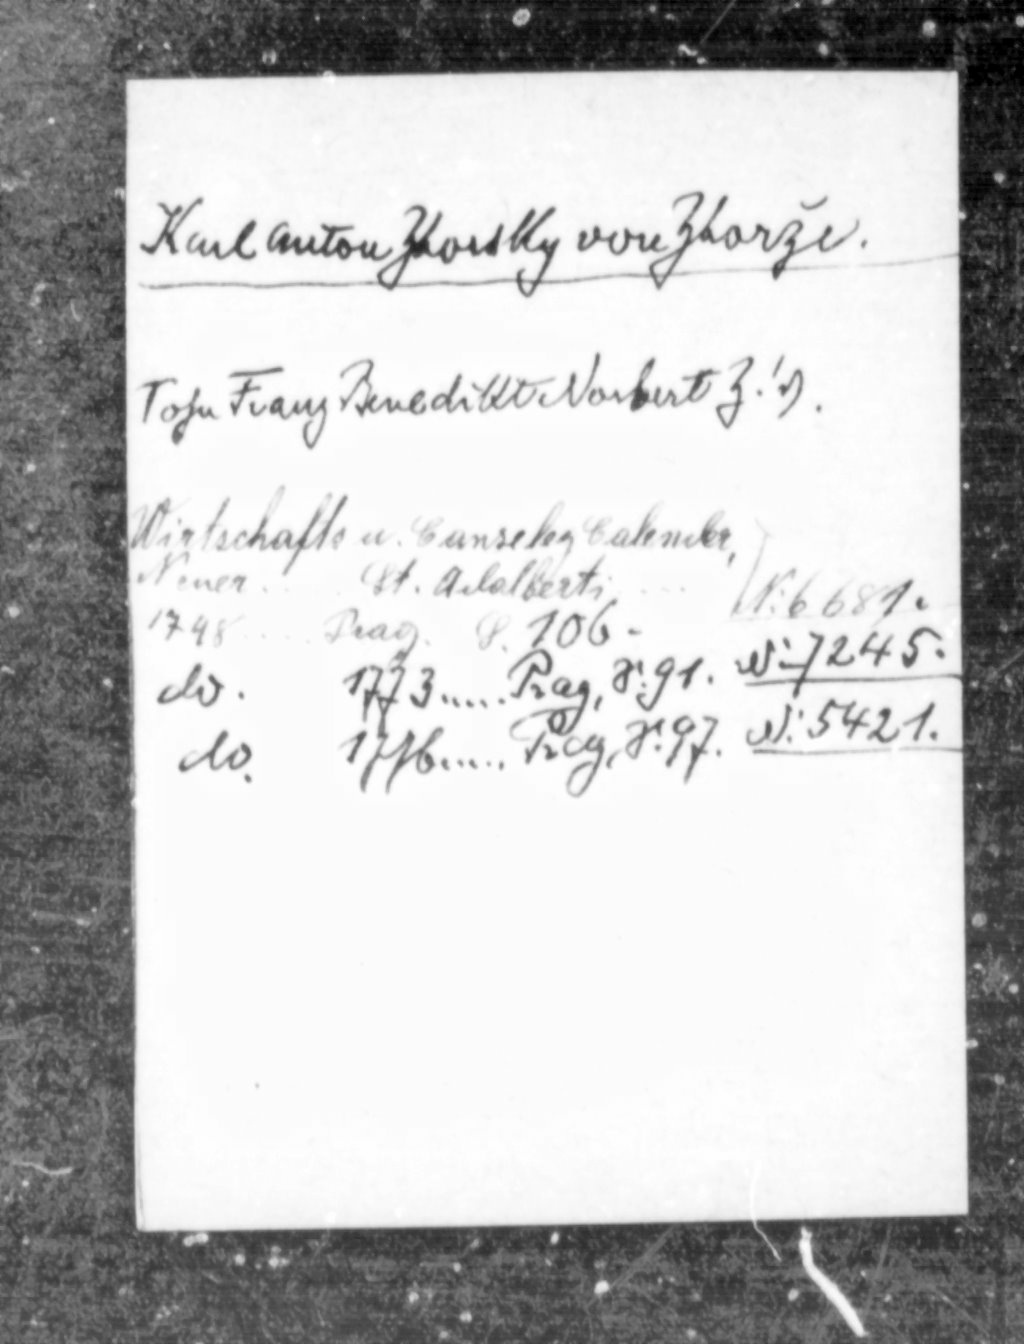 Karl Anton Zhorsky von Zhorže.
Franz Benedikt Norbert Z.!)
Wirtschafts u. Canzeley Calender,
Neuer .. St. Adalberti .... N: 6681.
1748 .... Prag. S. 106.
do. 1773..... Prag, S: 91. N: 7245.
do. 1776..... Prag, S: 97. N: 5421.